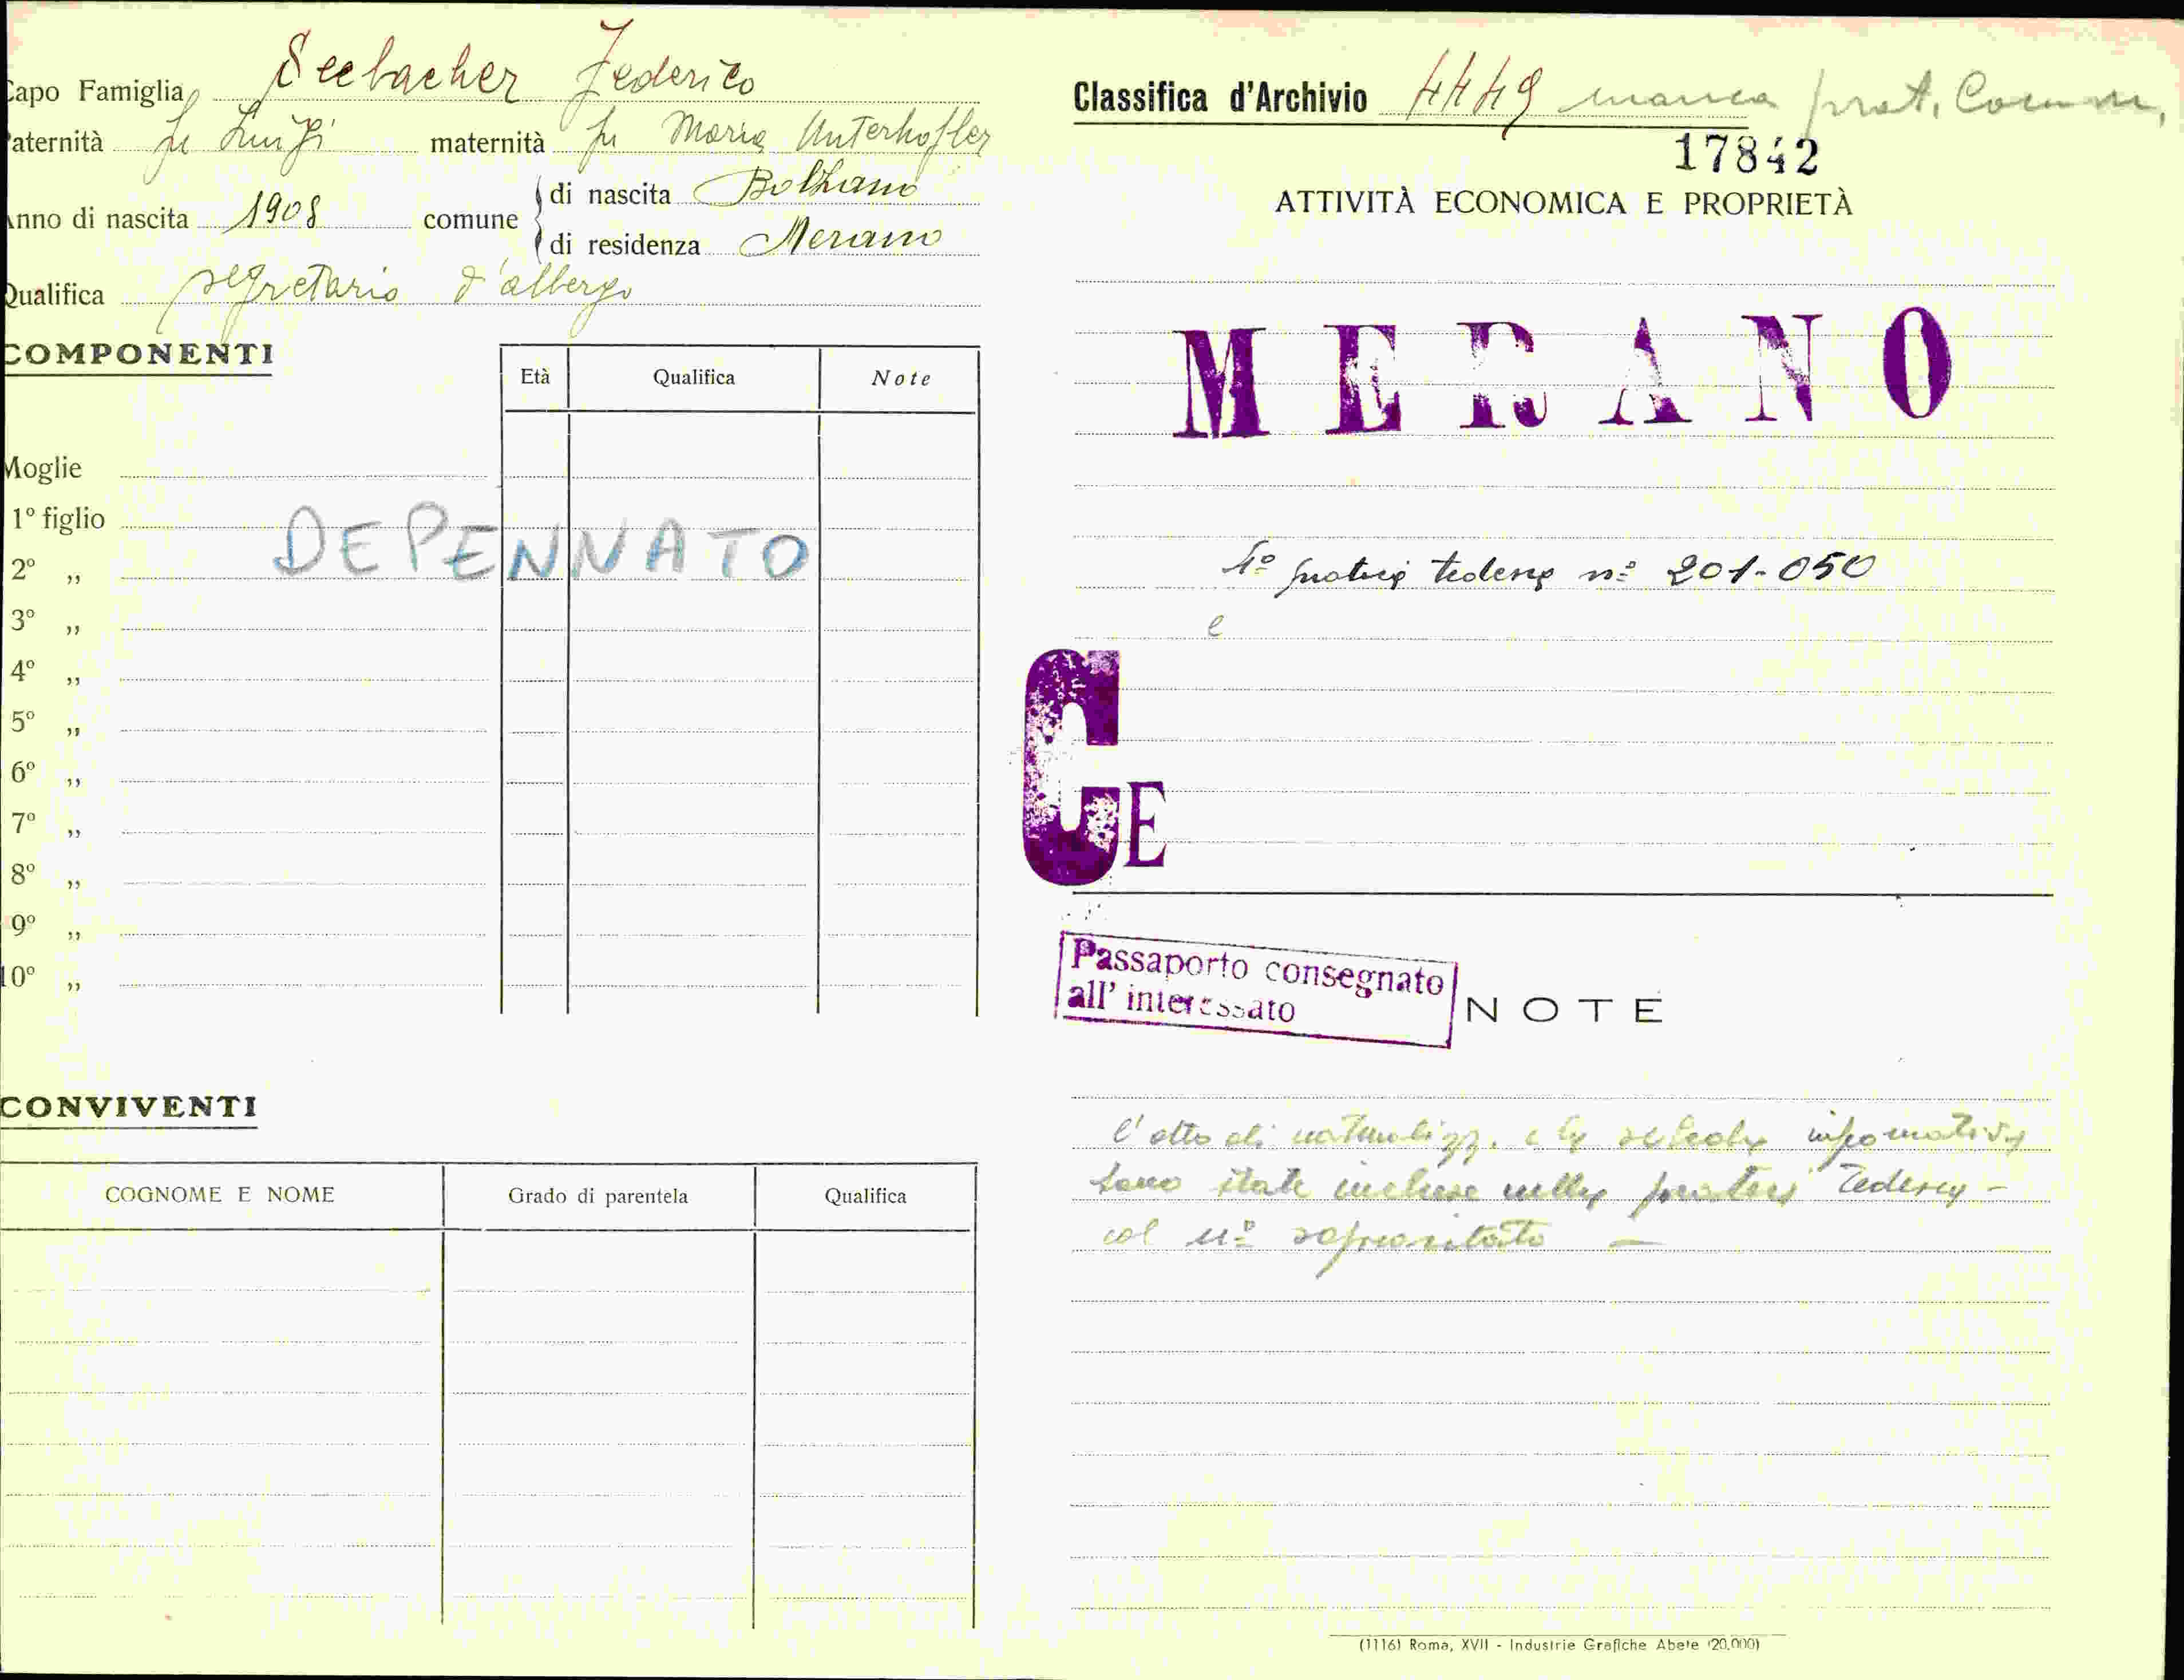 Capo Famiglia Seebacher Federico
Paternità fu Luigi maternità fu Maria Unterhofler
Anno di nascita 1908 comune di nascita Bolzano
di residenza Merano
Qualifica segretario d'albergo
COMPONENTI
Età Qualifica Note
Moglie
1º figlio
DEPENNATO
2º „
3º „
4º „
5º „
6º „
7º „
8º „
9º „
10º „
CONVIVENTI
COGNOME E NOME Grado di parentela Qualifica
Classifica d'Archivio 4449 manca prat. Comun.
17842
ATTIVITÀ ECONOMICA E PROPRIETÀ
MERANO
Nº pratica tedesca nº 201-050
e
CE
Passaporto consegnato
all' interessato
NOTE
l'atto di naturalizz. e la scheda informativa
sono state incluse nella pratica Tedesca -
col nº sopracitato -
(1116) Roma, XVII - Industrie Grafiche Abete (20.000)